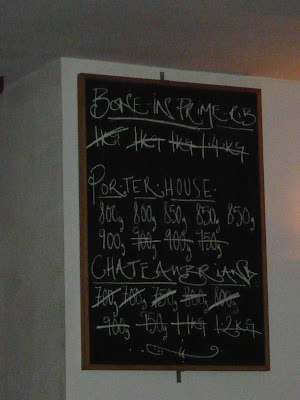 BONE-IN PRIME RIB
1KG 1KG 1KG 1.4KG
PORTER HOUSE
800g 800g 850g 850g 850g
900g 900g 900g 950g
CHATEAUBRIAND
700g 700g 750g 800g 800g
900g 950g 1KG 1.2KG